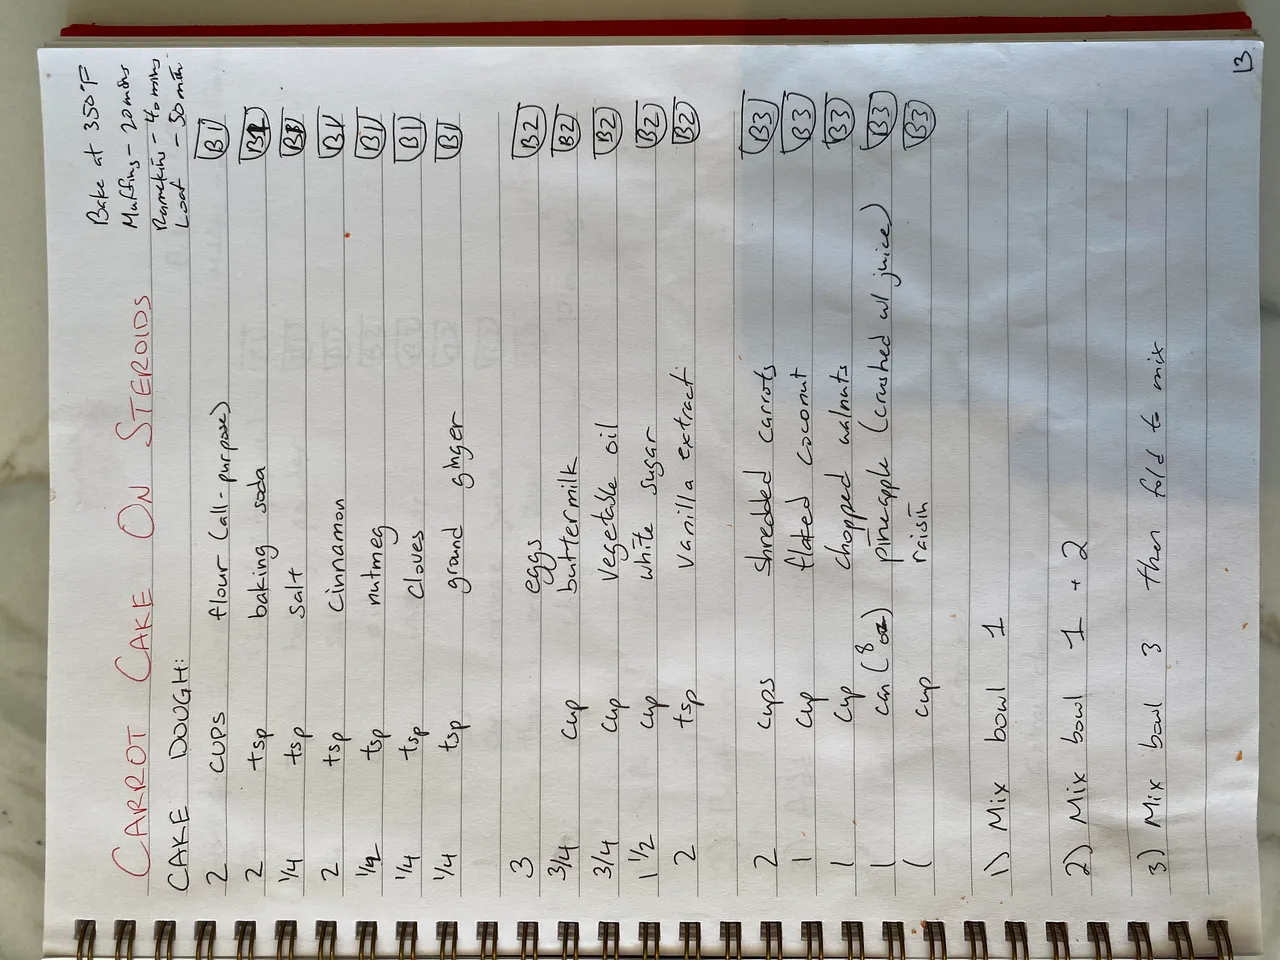 Bake at 350°F
Muffins - 20 mins
Ramekins - 40 mins
Loaf - 50 min
CARROT CAKE ON STEROIDS
CAKE DOUGH:
2 cups flour (all-purpose) B1
2 tsp baking soda B1
1/4 tsp salt B1
2 tsp cinnamon B1
tsp nutmeg B1
1/4 tsp cloves B1
1/4 tsp ground ginger B1
3 eggs B2
3/4 cup buttermilk B2
3/4 cup vegetable oil B2
1 1/2 cup white sugar B2
2 tsp vanilla extract B2
2 cups shredded carrots B3
1 cup flaked coconut B3
1 cup chopped walnuts B3
1 can (8 oz) pineapple (crushed w/ juice) B3
1 cup raisin B3
1) Mix bowl 1
2) Mix bowl 1 + 2
3) Mix bowl 3 then fold to mix
13